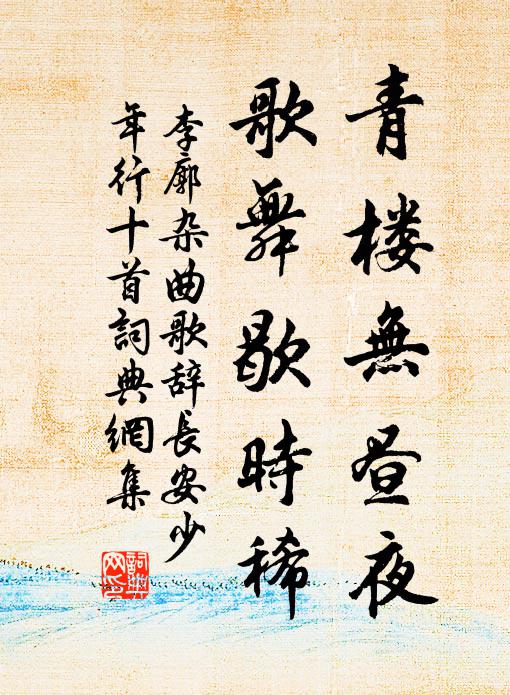 青楼無昼夜
歌舞歇時稀
李廓杂曲歌辞長安少
年行十首詞典網集